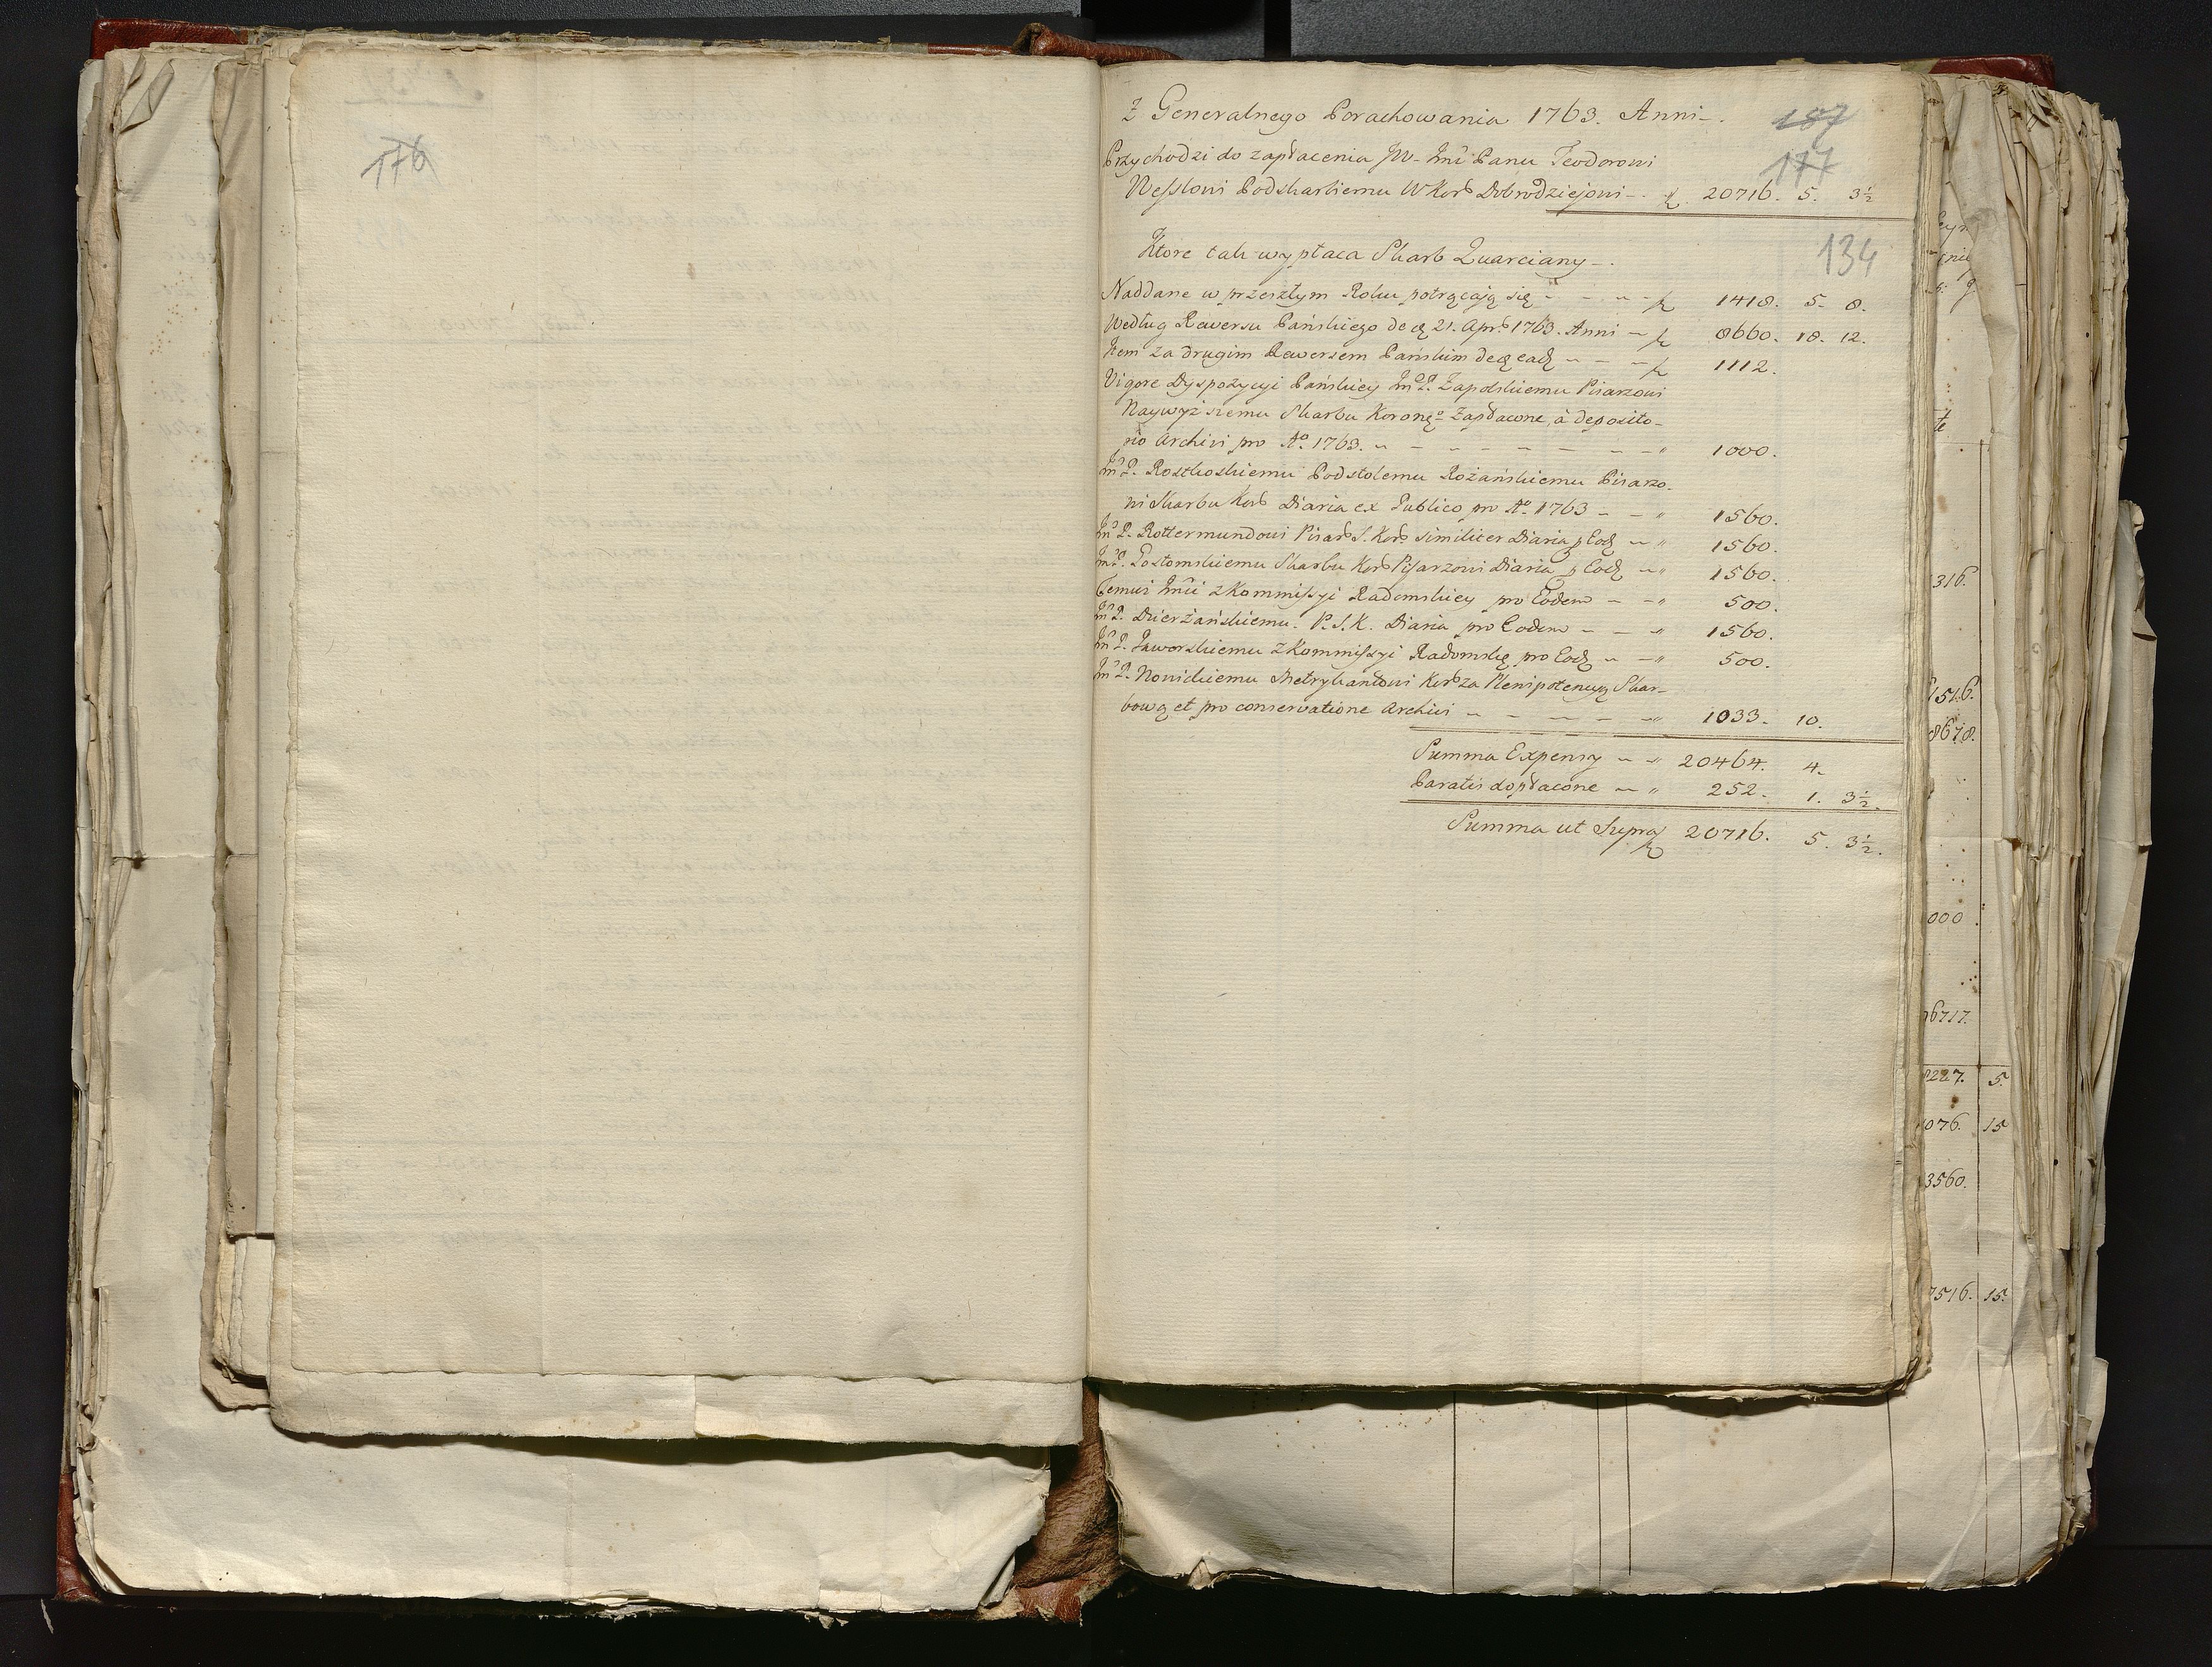 176
Z Generalnego Porachowania 1763. Anni.
187
Przychodzi do zapłacenia JW. Jmć Panu Teodorowi
177
Wesslowi Podskarbiemu W Kor Dobrodziejowi 20716. 5. 3½
134
Ktore tak wypłaca Skarb Quarciany
Naddane w przeszłym Roku potrącają się 1418. 5. 8.
Według Rewersu Pańskiego de 21. Apr. 1763. Anni 8660. 18. 12.
Item za drugim Rewersem Pańskim 1112.
Vigore Dyspozycyi Pańskiey JmP. Zapolskiemu Pisarzowi
Naywyższemu Skarbu Koronego Zapłacone, à deposito-
rio Archivi pro Ao. 1763. 1000.
JmP. Rostkoskiemu Podstolemu Rożańskiemu Pisarzo-
wi Skarbu Kor Diaria ex Publico pro Ao. 1763 1560.
JmP. Rottermundowi Pisar S. Kor. similiter Diaria 1560.
JmP. Postomskiemu Skarbu Kor Pisarzowi Diaria 1560.
Temuż Jmći z Kommissyi Radomskiey pro Eodem 500.
JmP. Dzierżańskiemu. P.S.K. Diaria pro Eodem 1560.
JmP. Jaworskiemu z Kommissyi Radomskę pro 500.
JmP. Nowickiemu Metrykantowi Kor za Plenipotencyą Skar-
bową et pro conservatione Archivi 1033. 10.
Summa Expensy 20464. 4.
Paratis dopłacone 252. 1. 3½.
Summa ut Supra 20716. 5. 3½.
316.
1516.
8678.
000
6717.
227. 5.
076. 15
3560.
7516. 15.